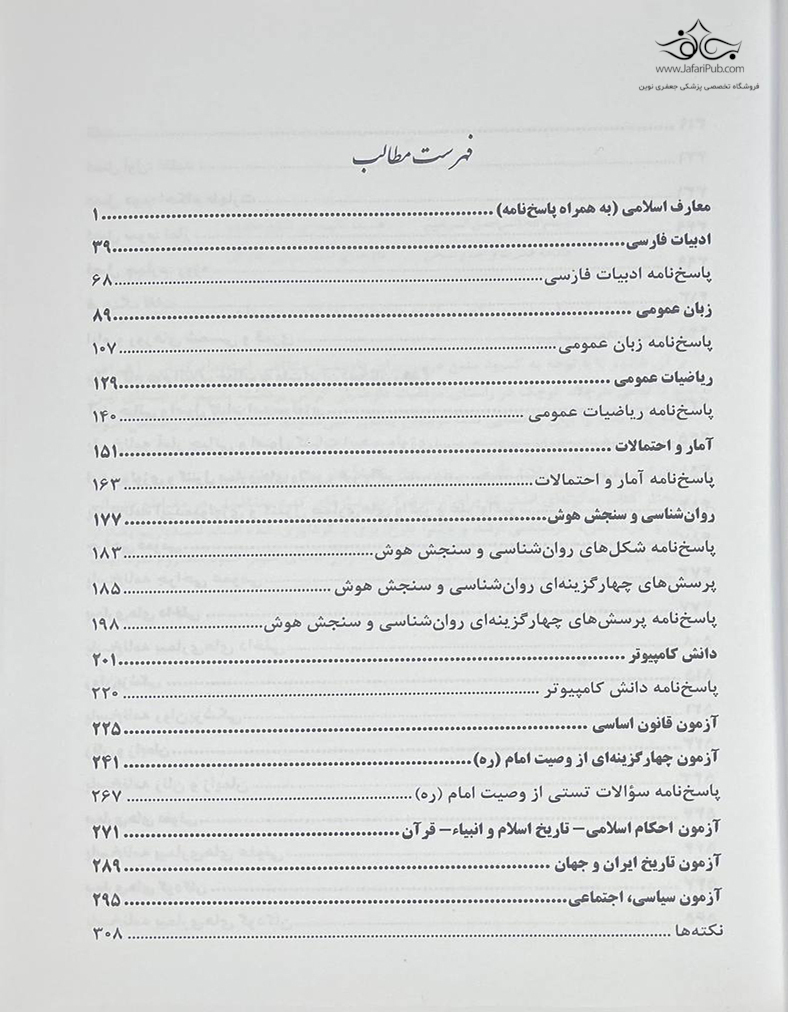 www.JafariPub.com
فروشگاه تخصصی پزشکی جعفری نوین
فهرست مطالب
معارف اسلامی (به همراه پاسخ‌نامه) ۱
ادبیات فارسی ۳۹
پاسخ‌نامه ادبیات فارسی ۶۸
زبان عمومی ۸۹
پاسخ‌نامه زبان عمومی ۱۰۷
ریاضیات عمومی ۱۲۹
پاسخ‌نامه ریاضیات عمومی ۱۴۰
آمار و احتمالات ۱۵۱
پاسخ‌نامه آمار و احتمالات ۱۶۳
روان‌شناسی و سنجش هوش ۱۷۷
پاسخ‌نامه شکل‌های روان‌شناسی و سنجش هوش ۱۸۳
پرسش‌های چهارگزینه‌ای روان‌شناسی و سنجش هوش ۱۸۵
پاسخ‌نامه پرسش‌های چهارگزینه‌ای روان‌شناسی و سنجش هوش ۱۹۸
دانش کامپیوتر ۲۰۱
پاسخ‌نامه دانش کامپیوتر ۲۲۰
آزمون قانون اساسی ۲۲۵
آزمون چهارگزینه‌ای از وصیت امام (ره) ۲۴۱
پاسخ‌نامه سؤالات تستی از وصیت امام (ره) ۲۶۷
آزمون احکام اسلامی– تاریخ اسلام و انبیاء– قرآن ۲۷۱
آزمون تاریخ ایران و جهان ۲۸۹
آزمون سیاسی، اجتماعی ۲۹۵
نکته‌ها ۳۰۸